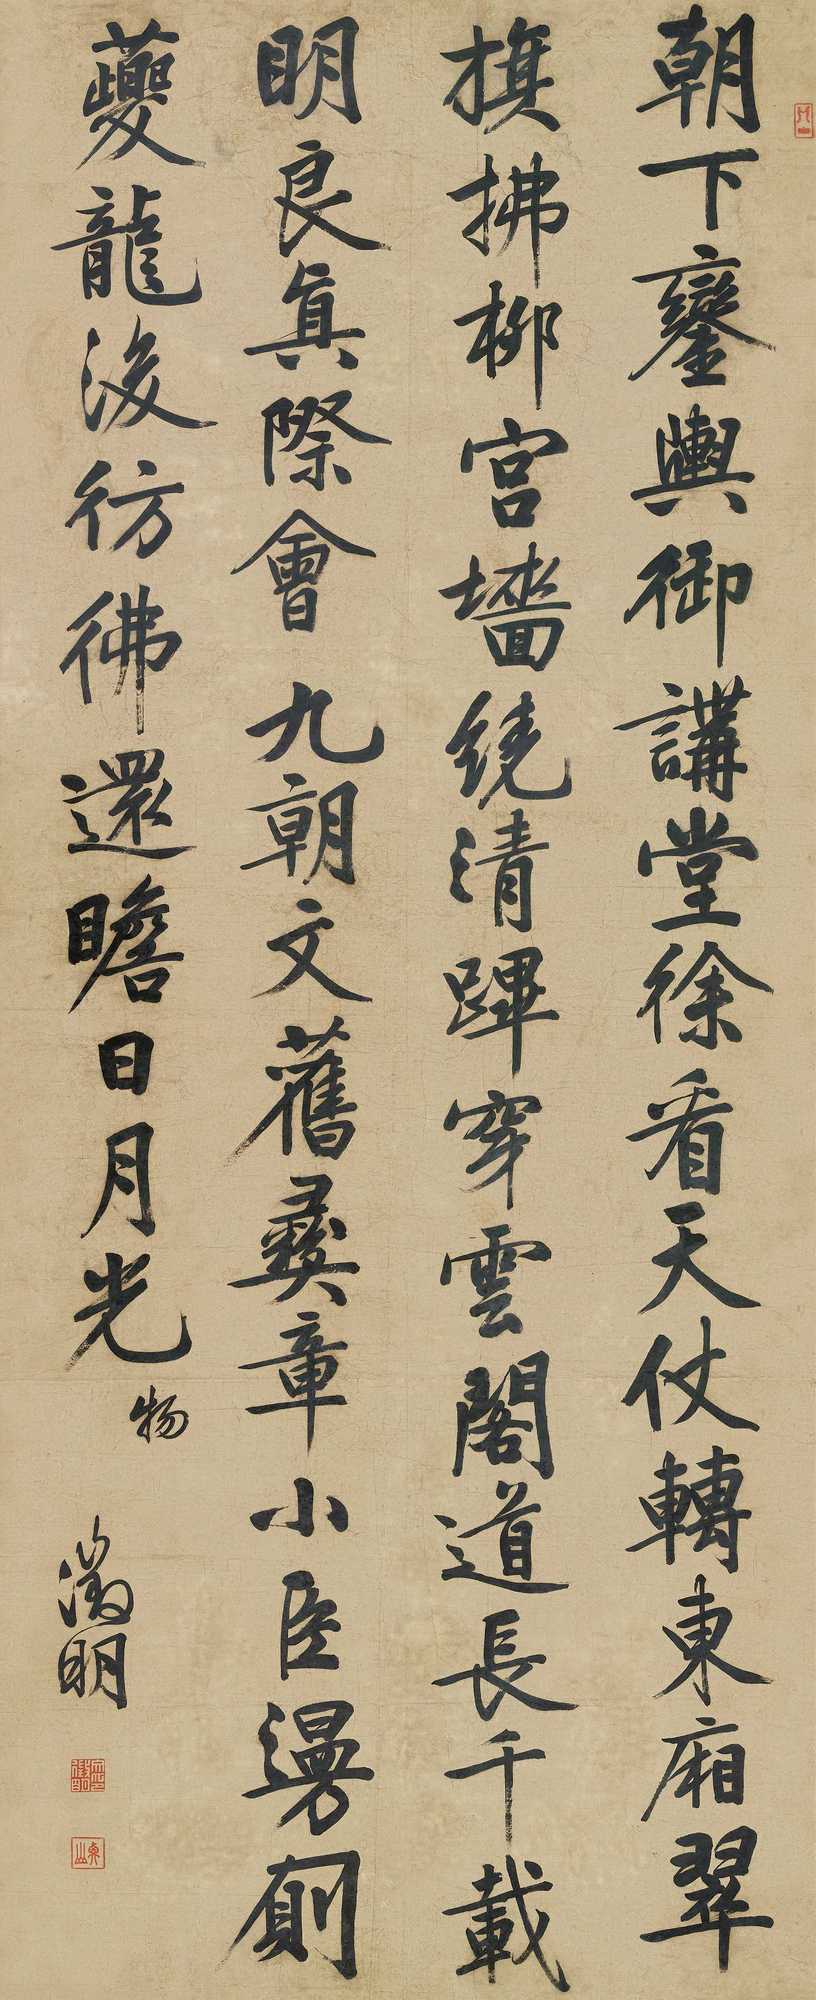 朝下鑾輿御講堂徐看天仗轉東廂翠
旗拂柳宮墻繞清蹕穿雲閣道長千載
明良真際會九朝文舊彝章小臣謾廁
夔龍後彷彿還瞻日月光
物
徵明